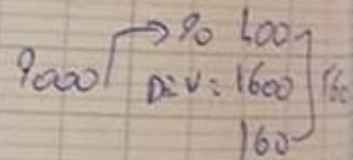 90 600
9000 Div: 1600 160
160